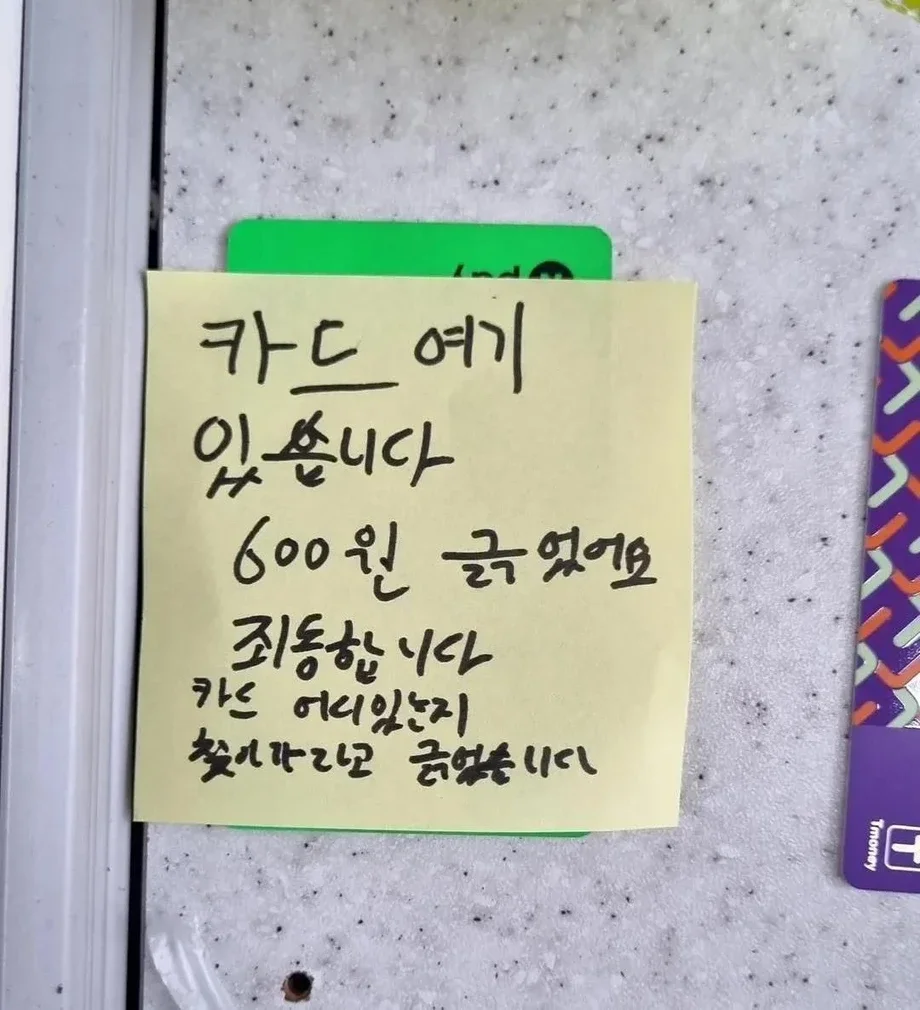 카드 여기
있습니다
600원 긁었어요
죄동합니다
카드 어디있는지
찾아가라고 긁었습니다
Tmoney